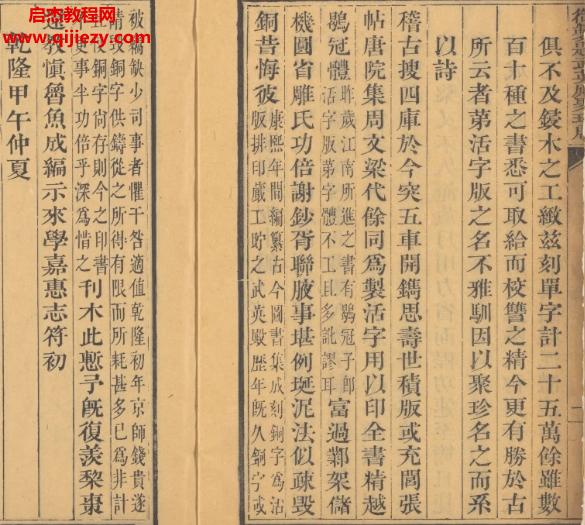 启杰教程网
www.qijiezy.com
俱不及鋟木之工緻茲刻單字計二十五萬餘雖數
百十種之書悉可取給而校讐之精今更有勝於古
所云者苐活字版之名不雅馴因以聚珍名之而系
以詩
稽古搜四庫於今突五車開鐫思壽世積版或充閭張
帖唐院集周文梁代餘同爲製活字用以印全書精越
鶡冠體昨歲江南所進之書有鶡冠子即活字版苐字體不工且多訛謬耳富過鄴架儲
機圓省雕氏功倍謝鈔胥聯腋事堪例埏泥法似疎毁
銅昔悔彼康熙年間編纂古今圖書集成刻銅字為活版排印蕆工貯之武英殿歷年既久銅字或
被竊缺少司事者懼干咎適值乾隆初年京師錢貴遂請毁銅字供鑄從之所得有限而所耗甚多已爲非計且使銅字尚存則今之印書不更事半功倍乎深爲惜之刋木此慙予既復羡棃棗
還教慎魯魚成編示來學嘉惠志符初
乾隆甲午仲夏